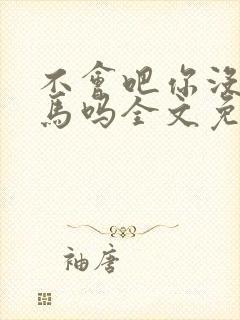 不會吧你沒
馬嗎全文免
袖唐